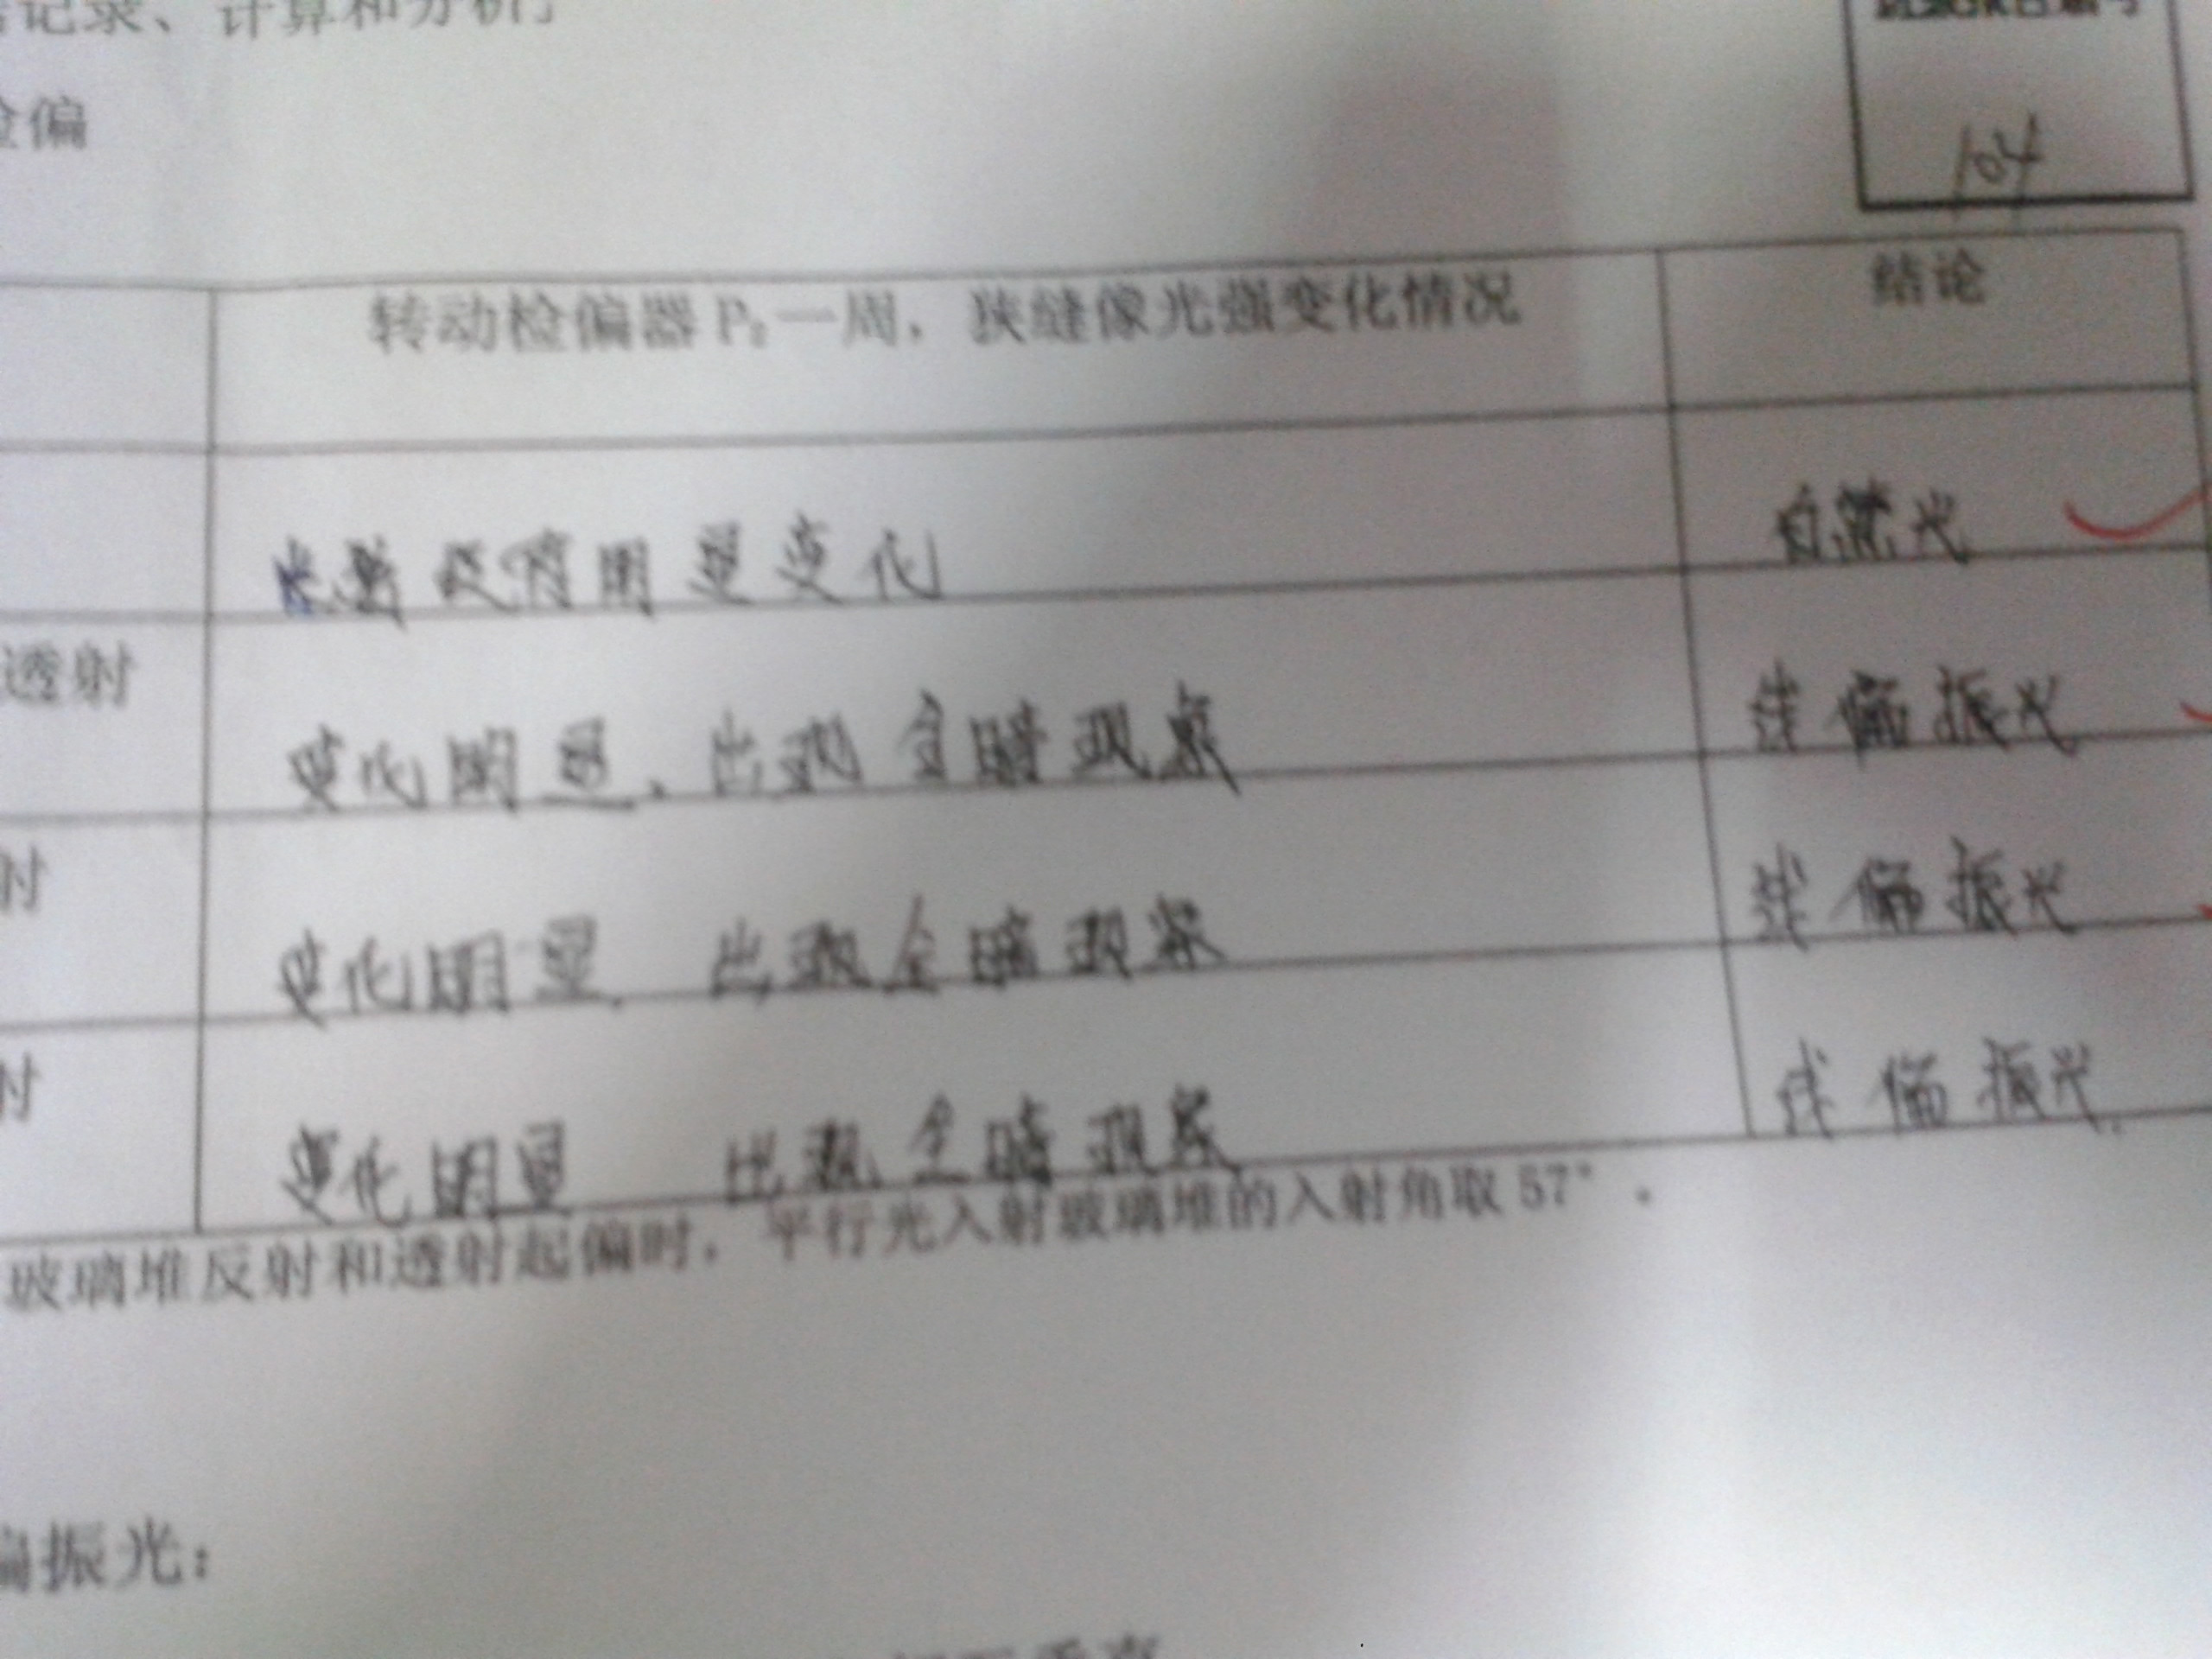 记录、计算和分析】
检偏
104
转动检偏器P₂一周，狭缝像光强变化情况
结论
光强没有明显变化
自然光
透射
变化明显、出现全暗现象
线偏振光
射
变化明显 出现全暗现象
线偏振光
射
变化明显 出现全暗现象
线偏振光
玻璃堆反射和透射起偏时，平行光入射玻璃堆的入射角取57°。
偏振光：